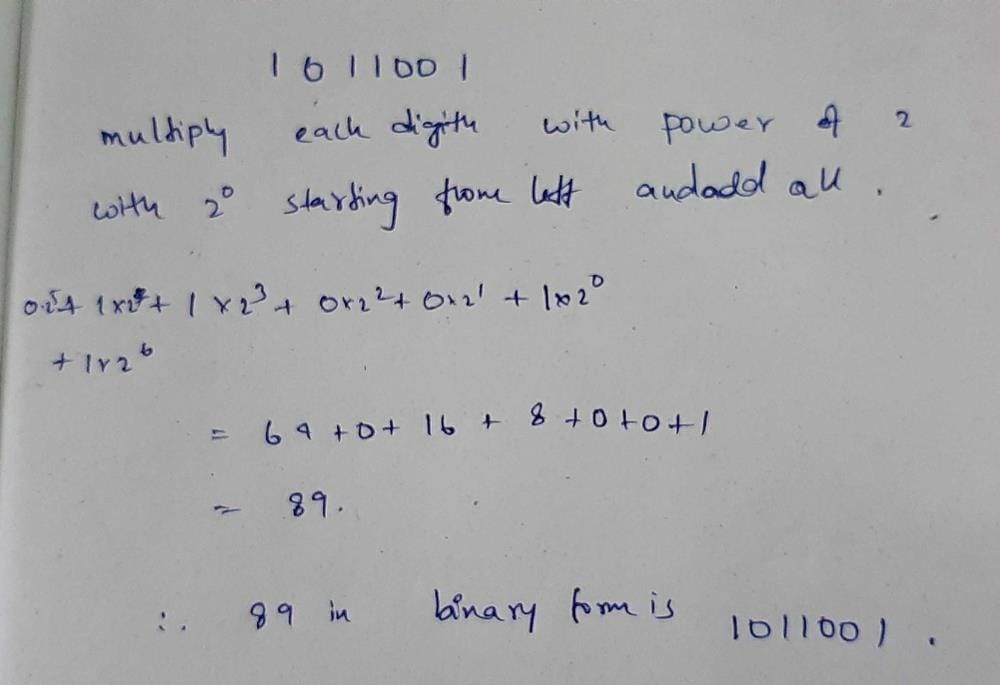 1011001
multiply each digith with power of 2
with 2⁰ starting from left and add all .
0.2⁵+ 1×2⁴+ 1×2³+ 0×2²+ 0×2¹ + 1×2⁰
+ 1×2⁶
= 64 +0+ 16 + 8 +0+0+1
= 89.
∴ 89 in binary form is 1011001 .